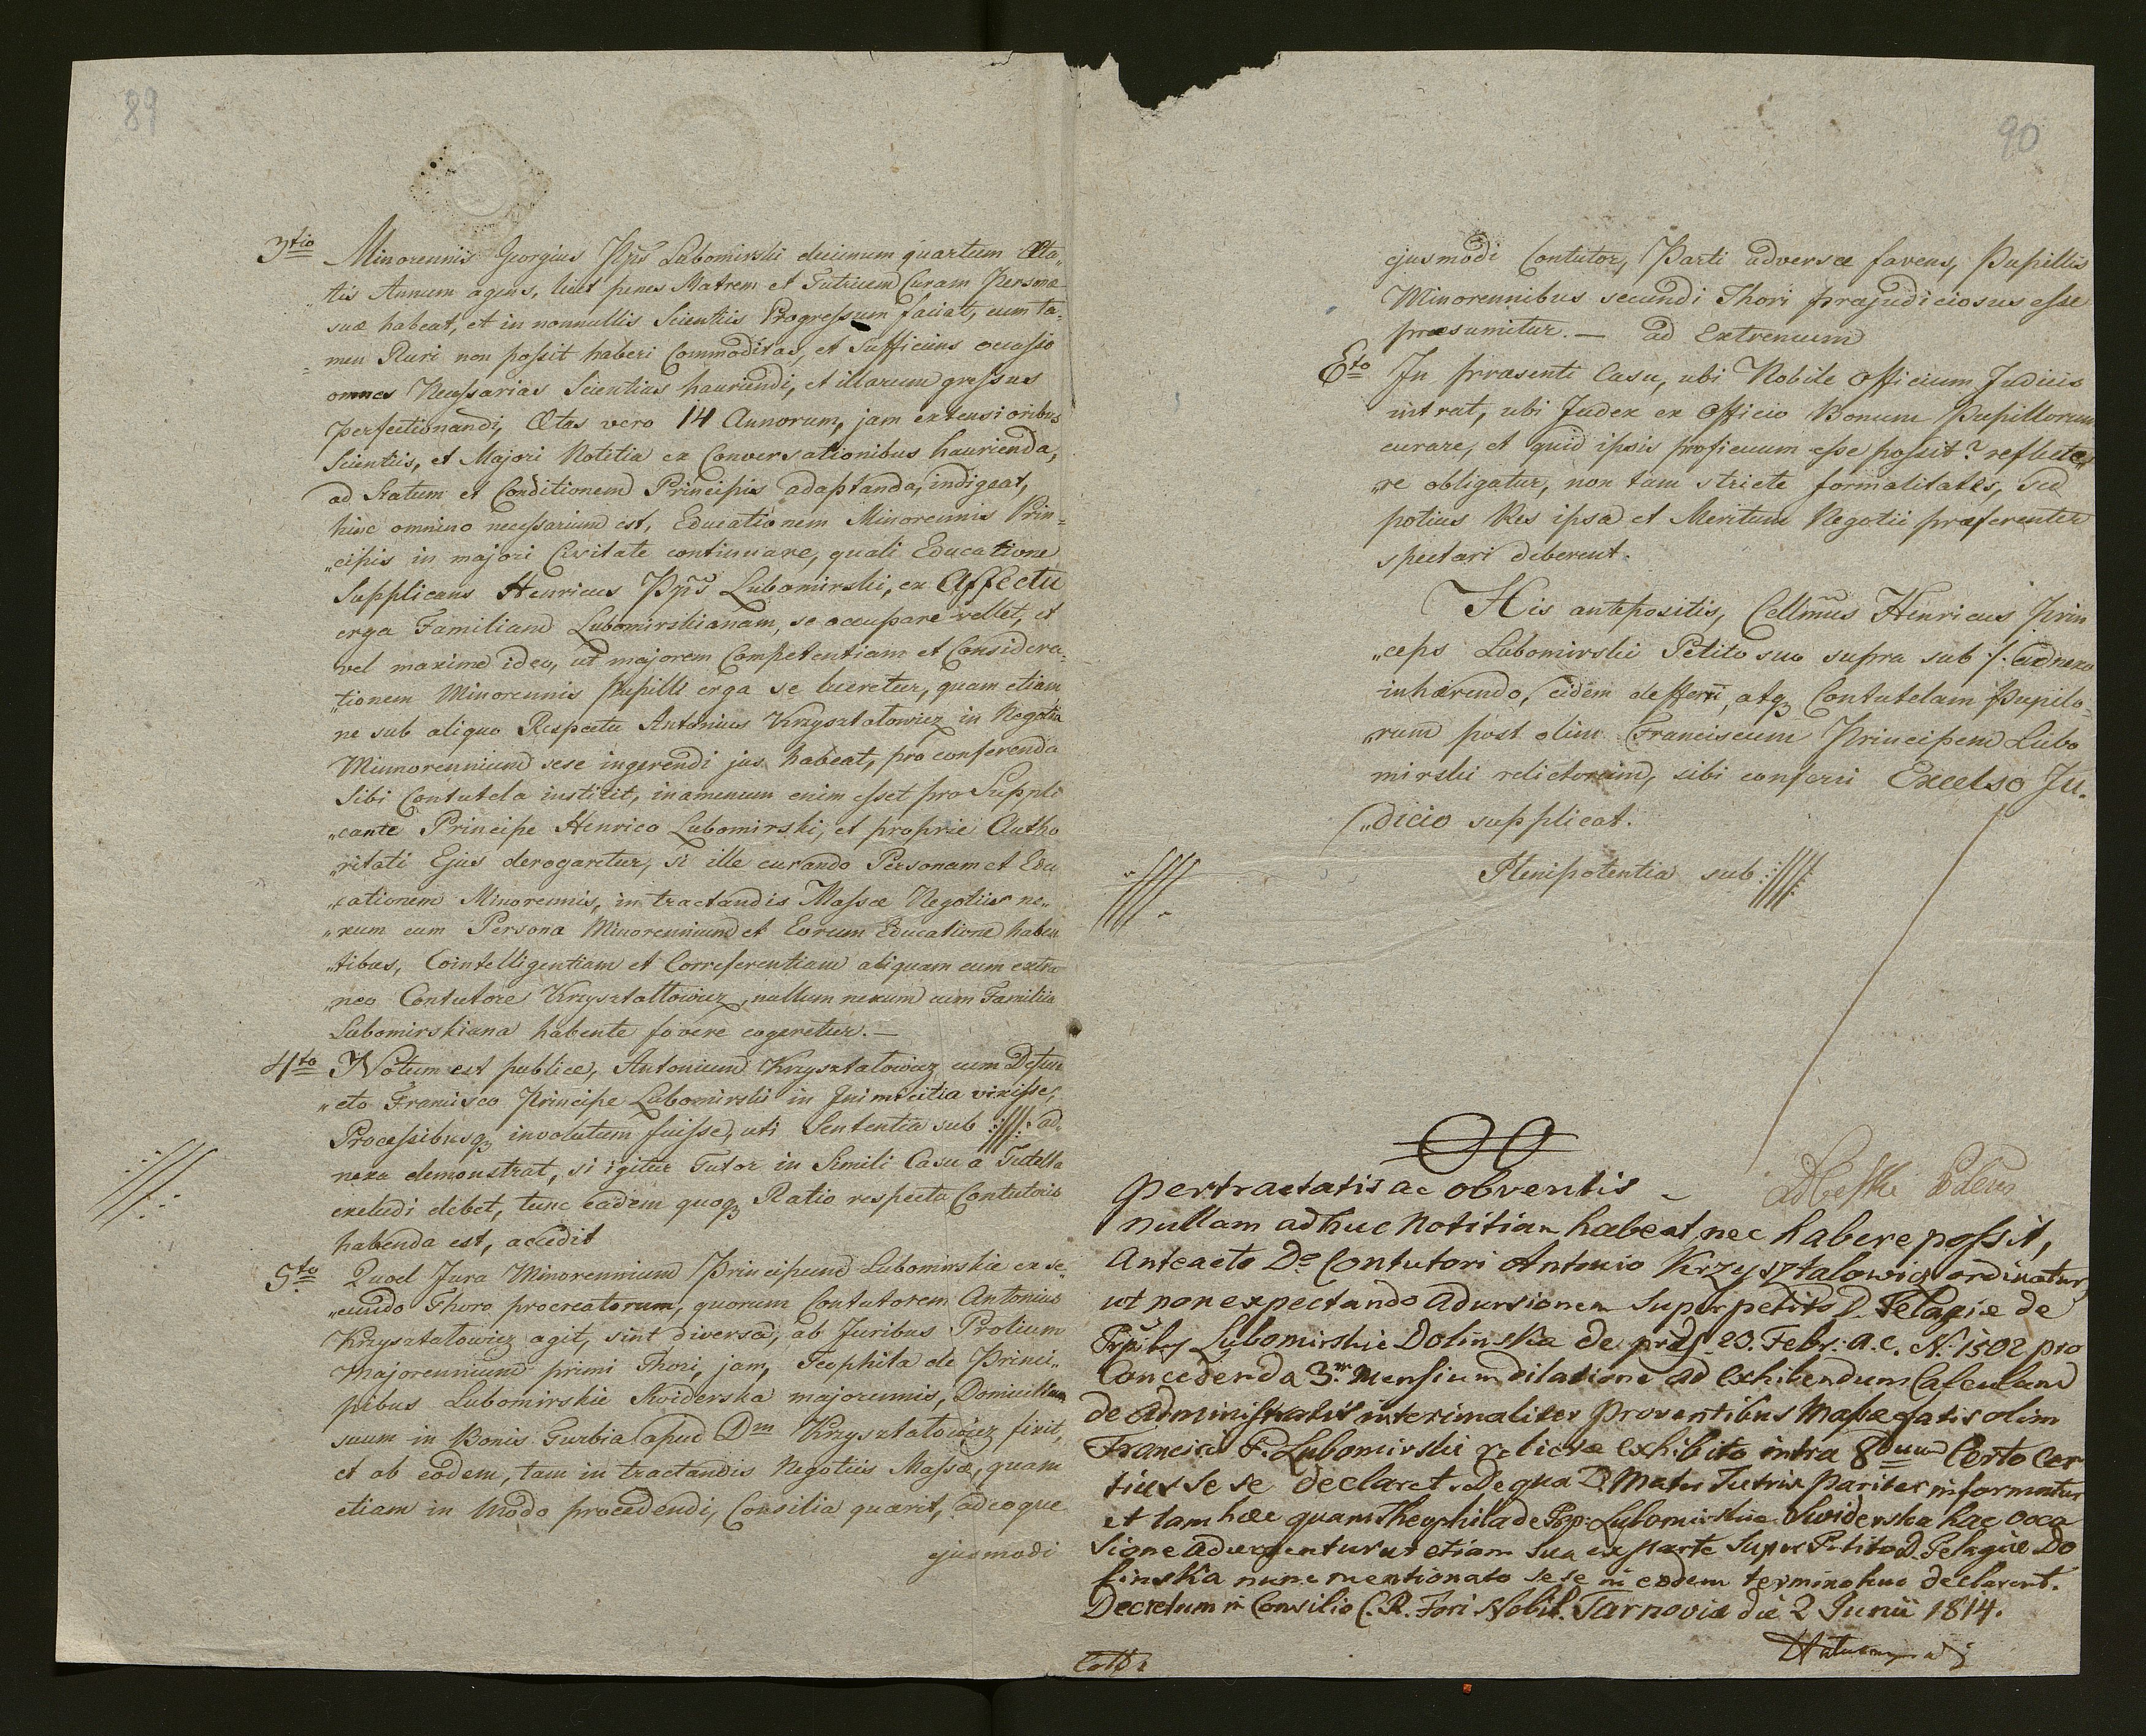 89
3tio Minorennis Georgius Pps Lubomirski decimum quartum Æta„
tis Annum agens, licet penes Matrem et Tutricem Curam Personæ
suæ habeat, et in nonnullis Scientiis Progressum faciat, cum ta„
„men Ruri non possit haberi Commoditas, et sufficiens occasio
omnes Necessarias Scientias hauriendi, et illarum gressus
perfectionandi, Ætas vero 14 Annorum, jam extensioribus
Scientiis, et Majori Notitia ex Conversationibus haurienda,
ad Statum et Conditionem Principis adaptanda, indigeat,
hinc omnino necessarium est, Educationem Minorennis Prin„
„cipis in majori Civitate continuare, quali Educatione
Supplicans Henricus Pps Lubomirski, ex Affectu
erga Familiam Lubomirskianam, se occupare vellet, et
vel maxime ideo, ut majorem Competentiam et Considera„
„tionem Minorennis Pupilli erga se lucretur, quam etiam
ne sub aliquo Respectu Antonius Krzysztalowicz in Negotia
Minnorennium sese ingerendi jus habeat, pro conferenda
Sibi Contutela institit, inamenum enim esset pro Suppli
„cante Principe Henrico Lubomirski, et proprie Autho
„ritati Ejus derogaretur, si ille curando Personam et Edu
„cationem Minorennis, in tractandis Massæ Negotiis ne„
„xum cum Persona Minorennium et Eorum Educatione haben
„tibus, Cointelligentiam et Correferentiam aliquam cum extra
„neo Contutore Krzysztallowicz, nullum nexum cum Familia
Lubomirskiana habente fovere cogeretur. —
4to Notum est publice, Antonium Krzysztalowicz cum Defun
„cto Francisco Principe Lubomirski in Inimicitia vixisse,
Processibusq3 involutum fuisse, uti Sententia sub ://: ad„
nexa demonstrat, si igitur Tutor in Simili Casu a Tutella
excludi debet, tunc eadem quoq3 Ratio respectu Contutoris
habenda est, accedit
5to Quod Jura Minorennium Principum Lubomirskie ex se„
„cundo Thoro procreatorum, quorum Contutorem Antonius
Krzysztalowicz agit, sint diversa, ab Juribus Prolium
Majorennium primi Thori, jam, Teophila de Princi„
pibus Lubomirskie Swiderska majorennis, Domicillum
suum in Bonis Turbia apud Dm Krzysztalowicz fixit,
et ab eodem, tam in tractandis Negotiis Massæ, quam
etiam in Modo procedendi, Consilia quærit, adeoque
ejusmodi
90
ejusmodi Contutor, Parti adversæ favens, Pupillis
Minorennibus secundi Thori præjudiciosus esse
præsumitur. — ad Extremum
6to In præsenti Casu, ubi Nobile Officium Judicis
intrat, ubi Judex ex Officio Bonum Pupillorum
curare, et quid ipsis proficuum esse possit? reflecte„
„re obligatur, non tam stricte formalitates, sed
potius Res ipsa et Meritum Negotii præferenter
spectari deberent.
His antepositis, Cellmus Henricus Prin
„ceps Lubomirski Petito suo supra sub ·/: adnexo
inhærendo, eidem defferri, atq3 Contutelam Pupilo„
„rum post olim Franciscum Principem Lubo
mirski relictorum, sibi conferri Excelso Ju„
„dicio supplicat.
Plenipotentia sub ://://:
pertractatis ac obventis
nullam adhuc Notitiam habeat, nec habere possit,
Anteacto Do Contutori Antonio Krzysztalowicz ordinatur,
ut non expectando adursionem Super petito D. Pelagiæ de
Lubomirskie Dolinska de præs 23. Febr: a.c. N: 1502 pro
Concedenda 3m Mensium dilatione ad Exhibendum Calculum
de administratis interimaliter Proventibus Massæ fatis olim
Francisci P. Lubomirski relictæ Exhibito intra 8duum Certo Cer
tius se se declaret. De qua D. Mater Tutrix pariter informatur
et tam hæc quam Theophila de Pp: Lubomirskie Swiderska hac occa
sione ut etiam sua ex parte super Petito D. Pelagiæ Do
linska nunc mentionato sese in eodem termino huc declarent.
Decretum in Consilio C. R. Fori Nobil. Tarnoviæ die 2 Junii 1814.